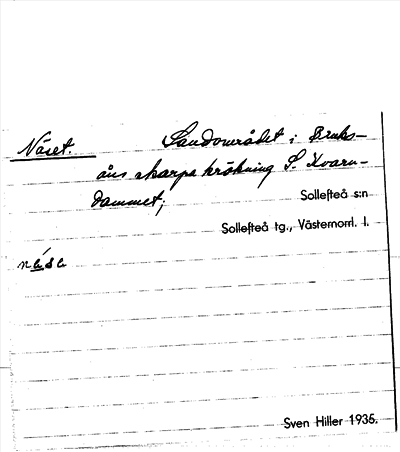 Näset. Landområdet i Bruks-
åns skarpa krökning S. Kvarn-
dammet;
Sollefteå s:n
Sollefteå tg., Västernorrl. l.
Sven Hiller 1935.